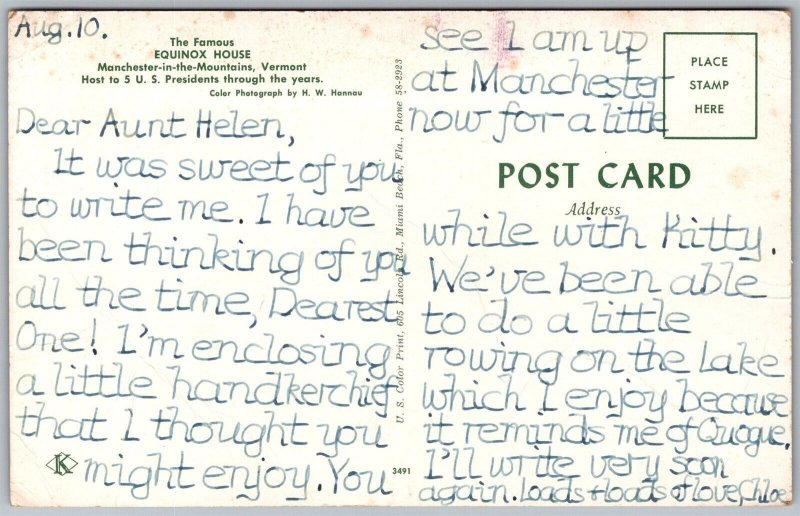 Aug. 10.
The Famous
EQUINOX HOUSE
Manchester-in-the-Mountains, Vermont
Host to 5 U. S. Presidents through the years.
Color Photograph by H. W. Hannau
Dear Aunt Helen,
It was sweet of you
to write me. I have
been thinking of you
all the time, Dearest
One! I'm enclosing
a little handkerchief
that I thought you
might enjoy. You
K
3491
U. S. Color Print, 605 Lincoln Rd., Miami Beach, Fla., Phone 58-2923
see I am up
at Manchester
now for a little
PLACE
STAMP
HERE
POST CARD
Address
while with Kitty.
We've been able
to do a little
rowing on the Lake
which I enjoy because
it reminds me of Quogue.
I'll write very soon
again. Loads + loads of love, Chloe